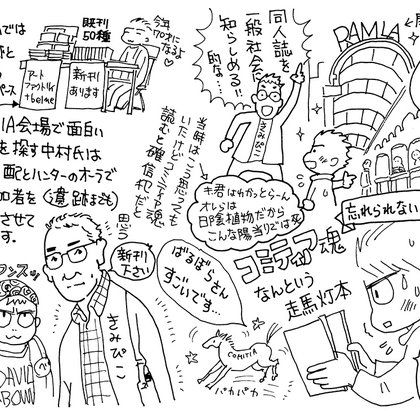 では
既刊
50種
今年
70才に
なるよ♡
アート
ファクトリィ
+belne
新刊
あります
同人誌を
一般社会に
知らしめる!!
的な…
きみぴこ
RAMIA
忘れられない
IA会場で面白い
を探す中村氏は
配とハンターのオーラで
加者を
させて
す。
当時はこう思っても
いたけどコミティア魂
読むと確信犯だと
思う
キ君はわかっとらーん
オレらは
日陰植物だから
こんな陽当りでは死
コミティア魂
なんという
走馬灯本
新刊
下さい
きみぴこ
ばるぼらさん
すごいです…
COMITIA
パカパカ
DAVID
BOWN